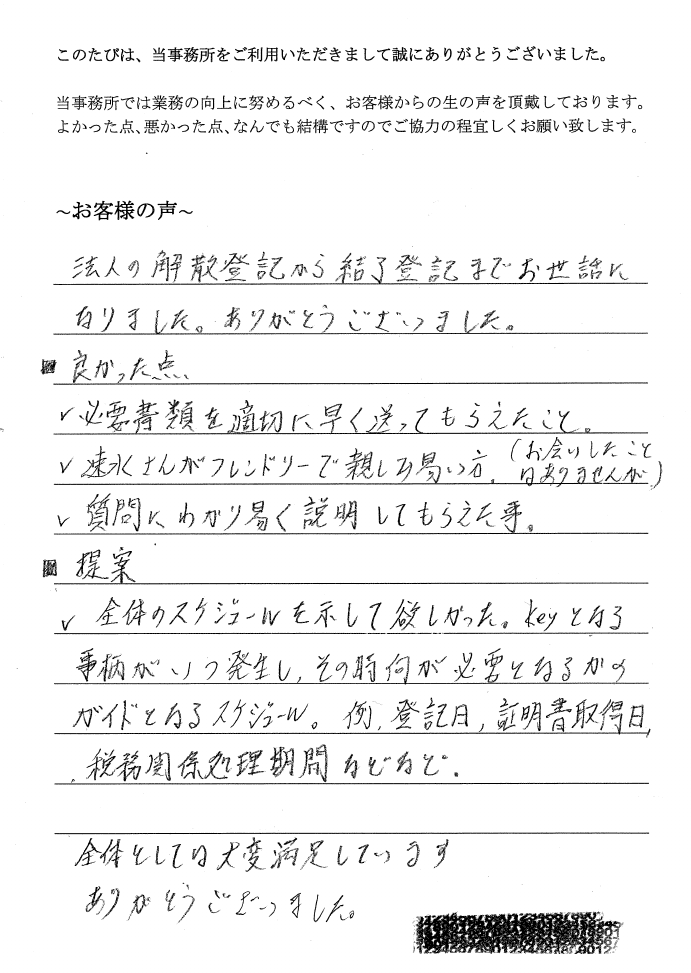 このたびは、当事務所をご利用いただきまして誠にありがとうございました。
当事務所では業務の向上に努めるべく、お客様からの生の声を頂戴しております。
よかった点、悪かった点、なんでも結構ですのでご協力の程宜しくお願い致します。
~お客様の声~
法人の解散登記から結了登記までお世話に
なりました。ありがとうございました。
良かった点
✓必要書類を適切に早く送ってもらえたこと。
✓速水さんがフレンドリーで親しみ易い方。(お会いしたこと
はありませんが)
✓質問にわかり易く説明してもらえた事。
提案
✓全体のスケジュールを示して欲しかった。keyとなる
事柄がいつ発生し、その時何が必要となるかの
ガイドとなるスケジュール。例、登記日,証明書取得日,
税務関係処理期間などなど.
全体としては大変満足しています
ありがとうございました。